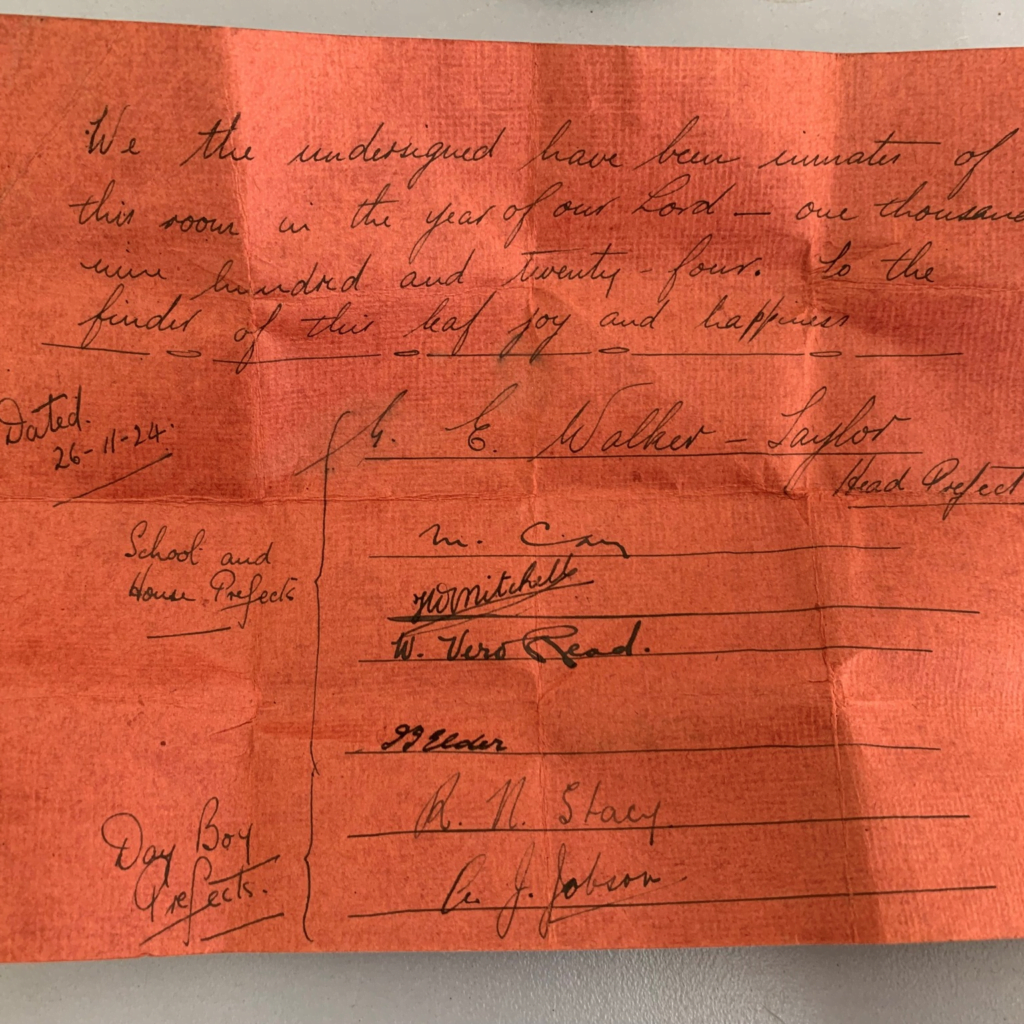 We the undersigned have been inmates of
this room in the year of our Lord — one thousand
nine hundred and twenty-four. To the
finder of this leaf joy and happiness
Dated.
26-11-24.
G. E. Walker-Taylor
Head Prefect
School and
House Prefects
M.
Mitchell
W. Vero Read.
Elder
R. N. Stacy
Day Boy
Prefects.
J. Jobson.